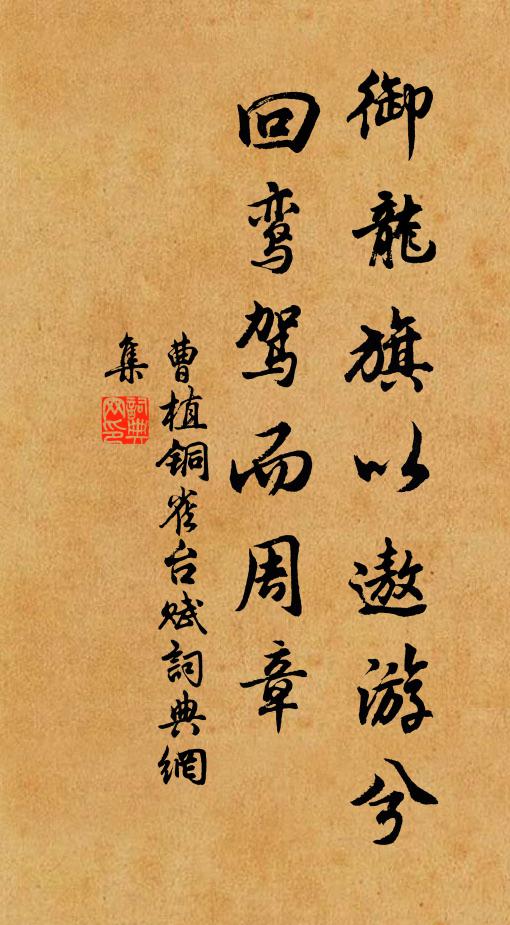 御龍旗以遨游兮
回鸾驾而周章
曹植铜雀台赋詞典網
集
詞典
网印